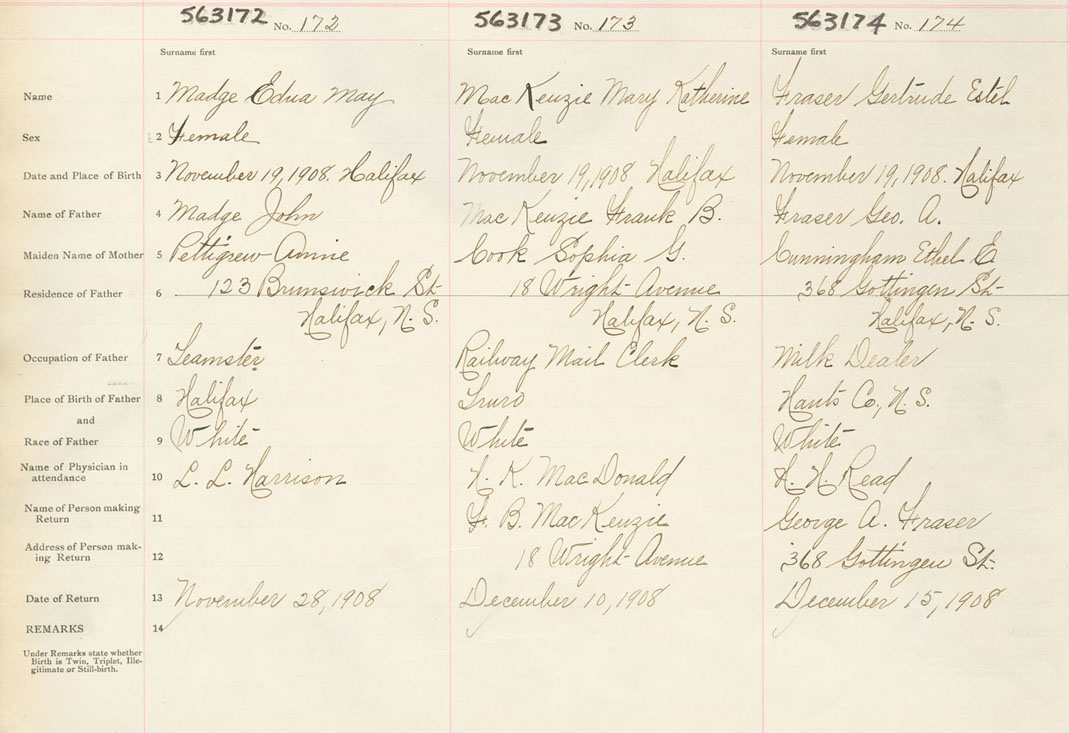 563172 No. 172 563173 No. 173 563174 No. 174
Surname first Surname first Surname first
Name 1 Madge Edna May MacKenzie Mary Katherine Fraser Gertrude Estel
Sex 2 Female Female Female
Date and Place of Birth 3 November 19, 1908. Halifax November 19, 1908 Halifax November 19, 1908. Halifax
Name of Father 4 Madge John MacKenzie Frank B. Fraser Geo. A.
Maiden Name of Mother 5 Pettigrew Annie Cook Sophia G. Cunningham Ethel E
Residence of Father 6 123 Brunswick St. 18 Wright Avenue 368 Gottingen St.
Halifax, N. S. Halifax, N. S. Halifax, N. S.
Occupation of Father 7 Teamster Railway Mail Clerk Milk Dealer
Place of Birth of Father 8 Halifax Truro Hants Co., N. S.
and
Race of Father 9 White White White
Name of Physician in
attendance 10 L. L. Harrison H. K. MacDonald H. H. Read
Name of Person making
Return 11 F. B. MacKenzie George A. Fraser
Address of Person mak-
ing Return 12 18 Wright Avenue 368 Gottingen St.
Date of Return 13 November 28, 1908 December 10, 1908 December 15, 1908
REMARKS 14
Under Remarks state whether
Birth is Twin, Triplet, Ille-
gitimate or Still-birth.